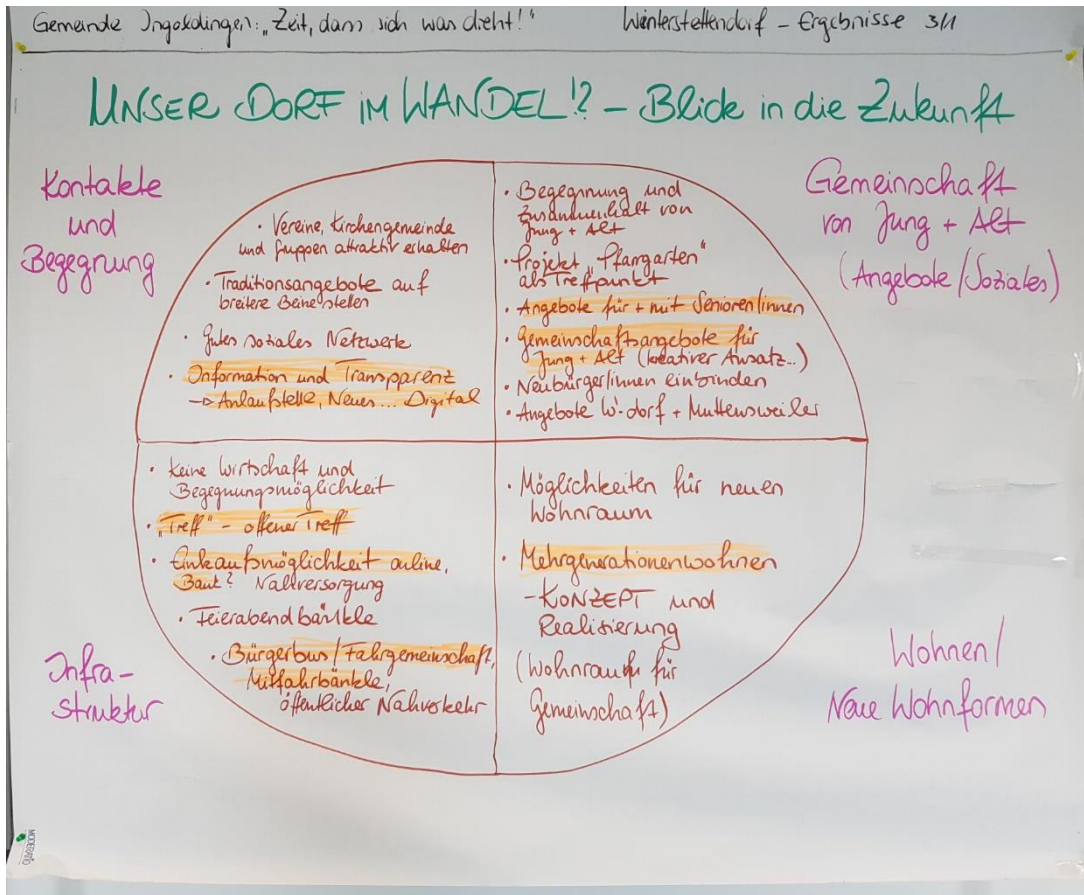 Gemeinde Ingoldingen: „Zeit, dass sich was dreht!" Winterstettendorf - Ergebnisse 3/1
UNSER DORF IM WANDEL!? - Blick in die Zukunft
Kontakte
und
Begegnung
• Vereine, Kirchengemeinde
und Gruppen attraktiv erhalten
• Traditionsangebote auf
breitere Beine stellen
• Gutes soziales Netzwerk
• Information und Transparenz
→ Anlaufstelle, Neues... Digital
Gemeinschaft
von Jung + Alt
(Angebote/Soziales)
• Begegnung und
Zusammenhalt von
Jung + Alt
• Projekt „Pfarrgarten"
als Treffpunkt
• Angebote für + mit Senioren/innen
• Gemeinschaftsangebote für
Jung + Alt (kreativer Ansatz...)
• Neubürger/innen einbinden
• Angebote W'dorf + Muttensweiler
Infra-
struktur
• Keine Wirtschaft und
Begegnungsmöglichkeit
• „Treff" - offener Treff
• Einkaufsmöglichkeit online,
Bank? Nahversorgung
• Feierabendbänkle
• Bürgerbus/Fahrgemeinschaft,
Mitfahrbänkle,
öffentlicher Nahverkehr
Wohnen/
Neue Wohnformen
• Möglichkeiten für neuen
Wohnraum
• Mehrgenerationenwohnen
- KONZEPT und
Realisierung
(Wohnraum für
Gemeinschaft)
MODERATIO